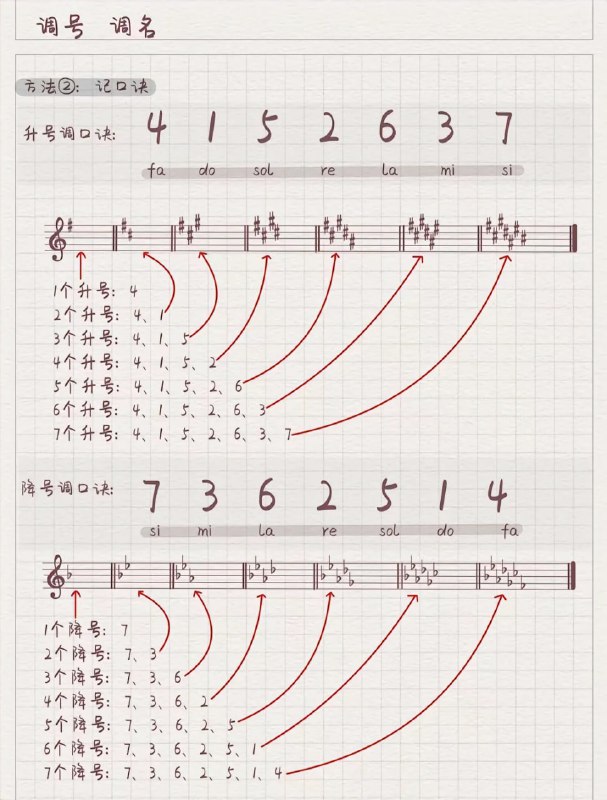 调号 调名
方法②: 记口诀
升号调口诀: 4 1 5 2 6 3 7
fa do sol re la mi si
1个升号: 4
2个升号: 4、1
3个升号: 4、1、5
4个升号: 4、1、5、2
5个升号: 4、1、5、2、6
6个升号: 4、1、5、2、6、3
7个升号: 4、1、5、2、6、3、7
降号调口诀: 7 3 6 2 5 1 4
si mi la re sol do fa
1个降号: 7
2个降号: 7、3
3个降号: 7、3、6
4个降号: 7、3、6、2
5个降号: 7、3、6、2、5
6个降号: 7、3、6、2、5、1
7个降号: 7、3、6、2、5、1、4